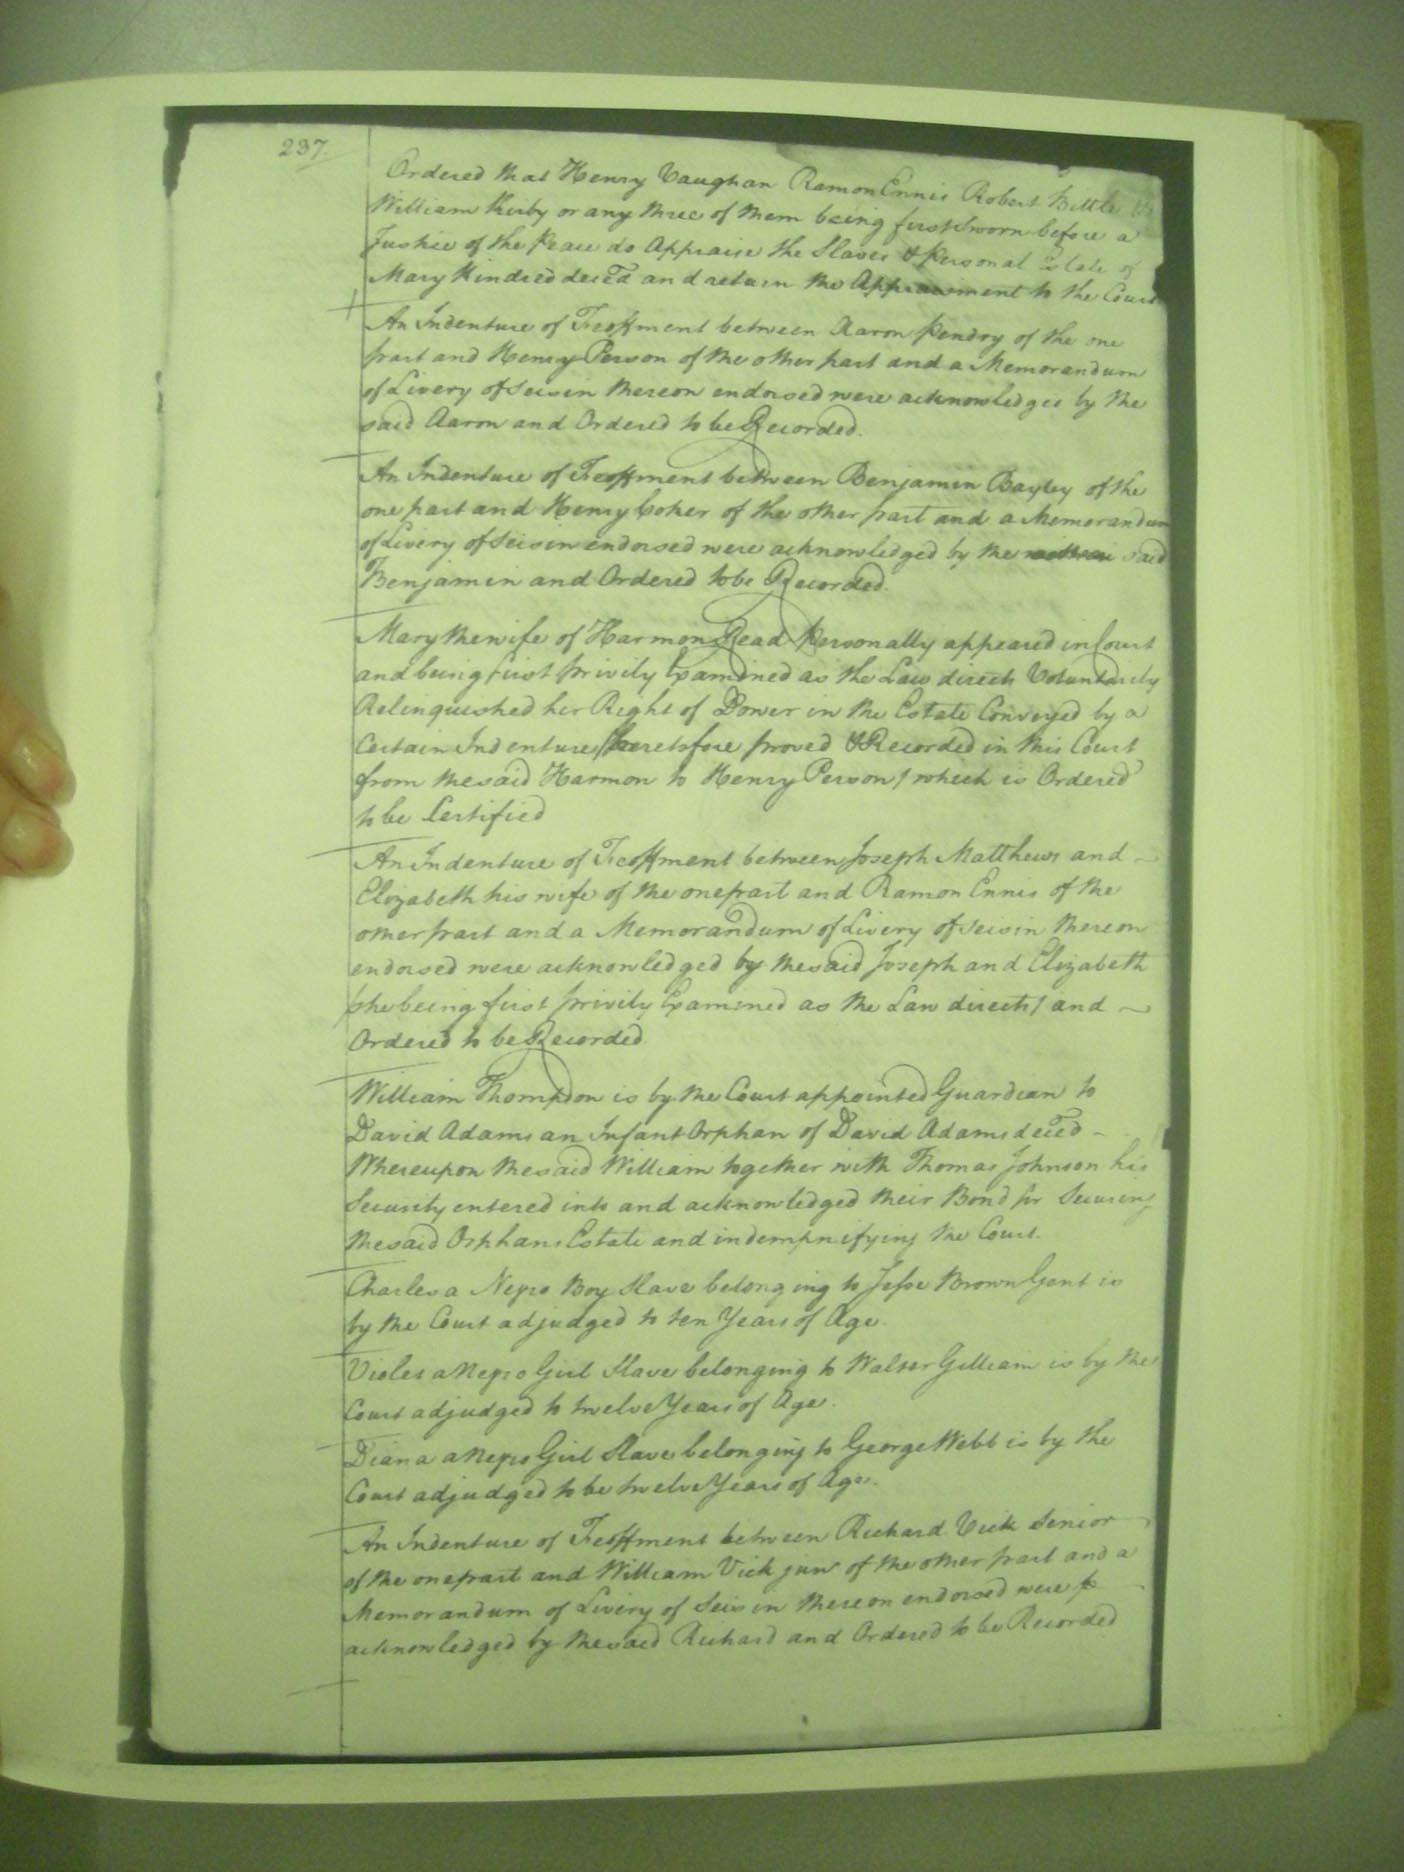 237.
Ordered that Henry Vaughan Ramon Ennis Robert Bittle &
William Kirby or any three of them being first Sworn before a
Justice of the Peace do Appraise the Slaves & Personal Estate of
Mary Kindred deced and return the Appraisment to the Court
An Indenture of Feoffment between Aaron Pendry of the one
part and Henry Person of the other part and a Memorandum
of Livery of Seisin thereon endorsed were acknowledged by the
said Aaron and Ordered to be Recorded.
An Indenture of Feoffment between Benjamin Bayley of the
one part and Henry Coker of the other part and a Memorandum
of Livery of Seisin endorsed were acknowledged by the said
Benjamin and Ordered to be Recorded.
Mary the wife of Harmon Read Personally appeared in Court
and being first privily Examined as the Law directs Voluntarily
Relinquished her Right of Dower in the Estate Conveyed by a
Certain Indenture (heretofore proved & Recorded in this Court
from the said Harmon to Henry Person) which is Ordered
to be Certified
An Indenture of Feoffment between Joseph Matthews and
Elizabeth his wife of the one part and Ramon Ennis of the
other part and a Memorandum of Livery of Seisin thereon
endorsed were acknowledged by the said Joseph and Elizabeth
(she being first privily Examined as the Law directs) and
Ordered to be Recorded
William Thompson is by the Court appointed Guardian to
David Adams an Infant Orphan of David Adams deced
Whereupon the said William together with Thomas Johnson his
Security entered into and acknowledged their Bond for Securing
the said Orphans Estate and indempnifying the Court.
Charles a Negro Boy Slave belonging to Jesse Brown Gent is
by the Court adjudged to ten Years of Age.
Violet a Negro Girl Slave belonging to Walter Gilliam is by the
Court adjudged to twelve Years of Age.
Diana a Negro Girl Slave belonging to George Webb is by the
Court adjudged to be twelve Years of Age.
An Indenture of Feoffment between Richard Vick Senior
of the one part and William Vick junr of the other part and a
Memorandum of Livery of Seisin thereon endorsed were
acknowledged by the said Richard and Ordered to be Recorded